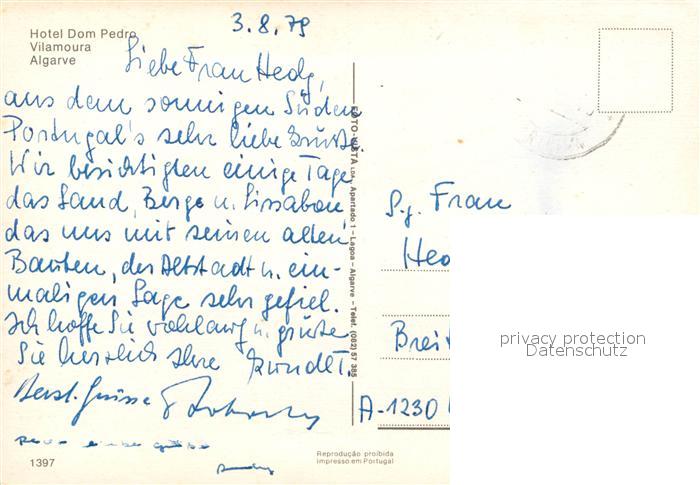 Hotel Dom Pedro
Vilamoura
Algarve
3.8.79
Liebe Frau Hedy,
aus dem sonnigen Süden
Portugal's sehr liebe Grüße.
Wir besichtigten einige Tage
das Land, Berge u. Lissabon
das uns mit seinen alten
Bauten, der Altstadt u. ein-
maligen Lage sehr gefiel.
Ich hoffe Sie wohlauf u. grüße
Sie herzlich Ihre
Herzl. Grüsse
1397
FOTO-VISTA LDA - Apartado 1 - Lagoa - Algarve - Telef. (082) 57 385
S.g. Frau
Hed
Breit
A-1230
privacy protection
Datenschutz
Reprodução proibida
impresso em Portugal